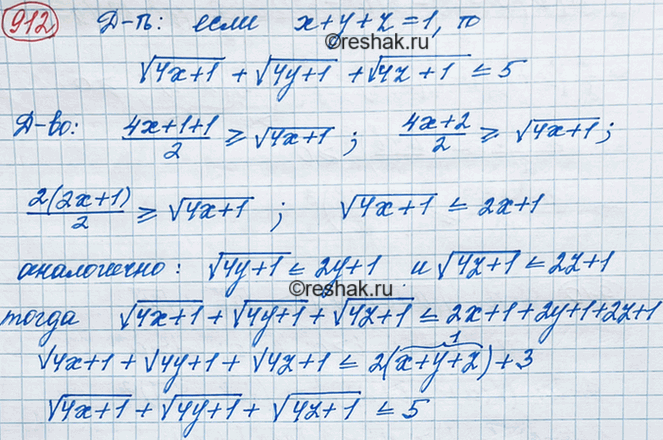 912 Д-ть: если x+y+z=1, то
©reshak.ru
√4x+1 + √4y+1 + √4z+1 ≤ 5
Д-во: (4x+1+1)/2 ≥ √4x+1 ; (4x+2)/2 ≥ √4x+1 ;
2(2x+1)/2 ≥ √4x+1 ; √4x+1 ≤ 2x+1
аналогично: √4y+1 ≤ 2y+1 и √4z+1 ≤ 2z+1
©reshak.ru
тогда √4x+1 + √4y+1 + √4z+1 ≤ 2x+1+2y+1+2z+1
√4x+1 + √4y+1 + √4z+1 ≤ 2(x+y+z)+3
1
√4x+1 + √4y+1 + √4z+1 ≤ 5